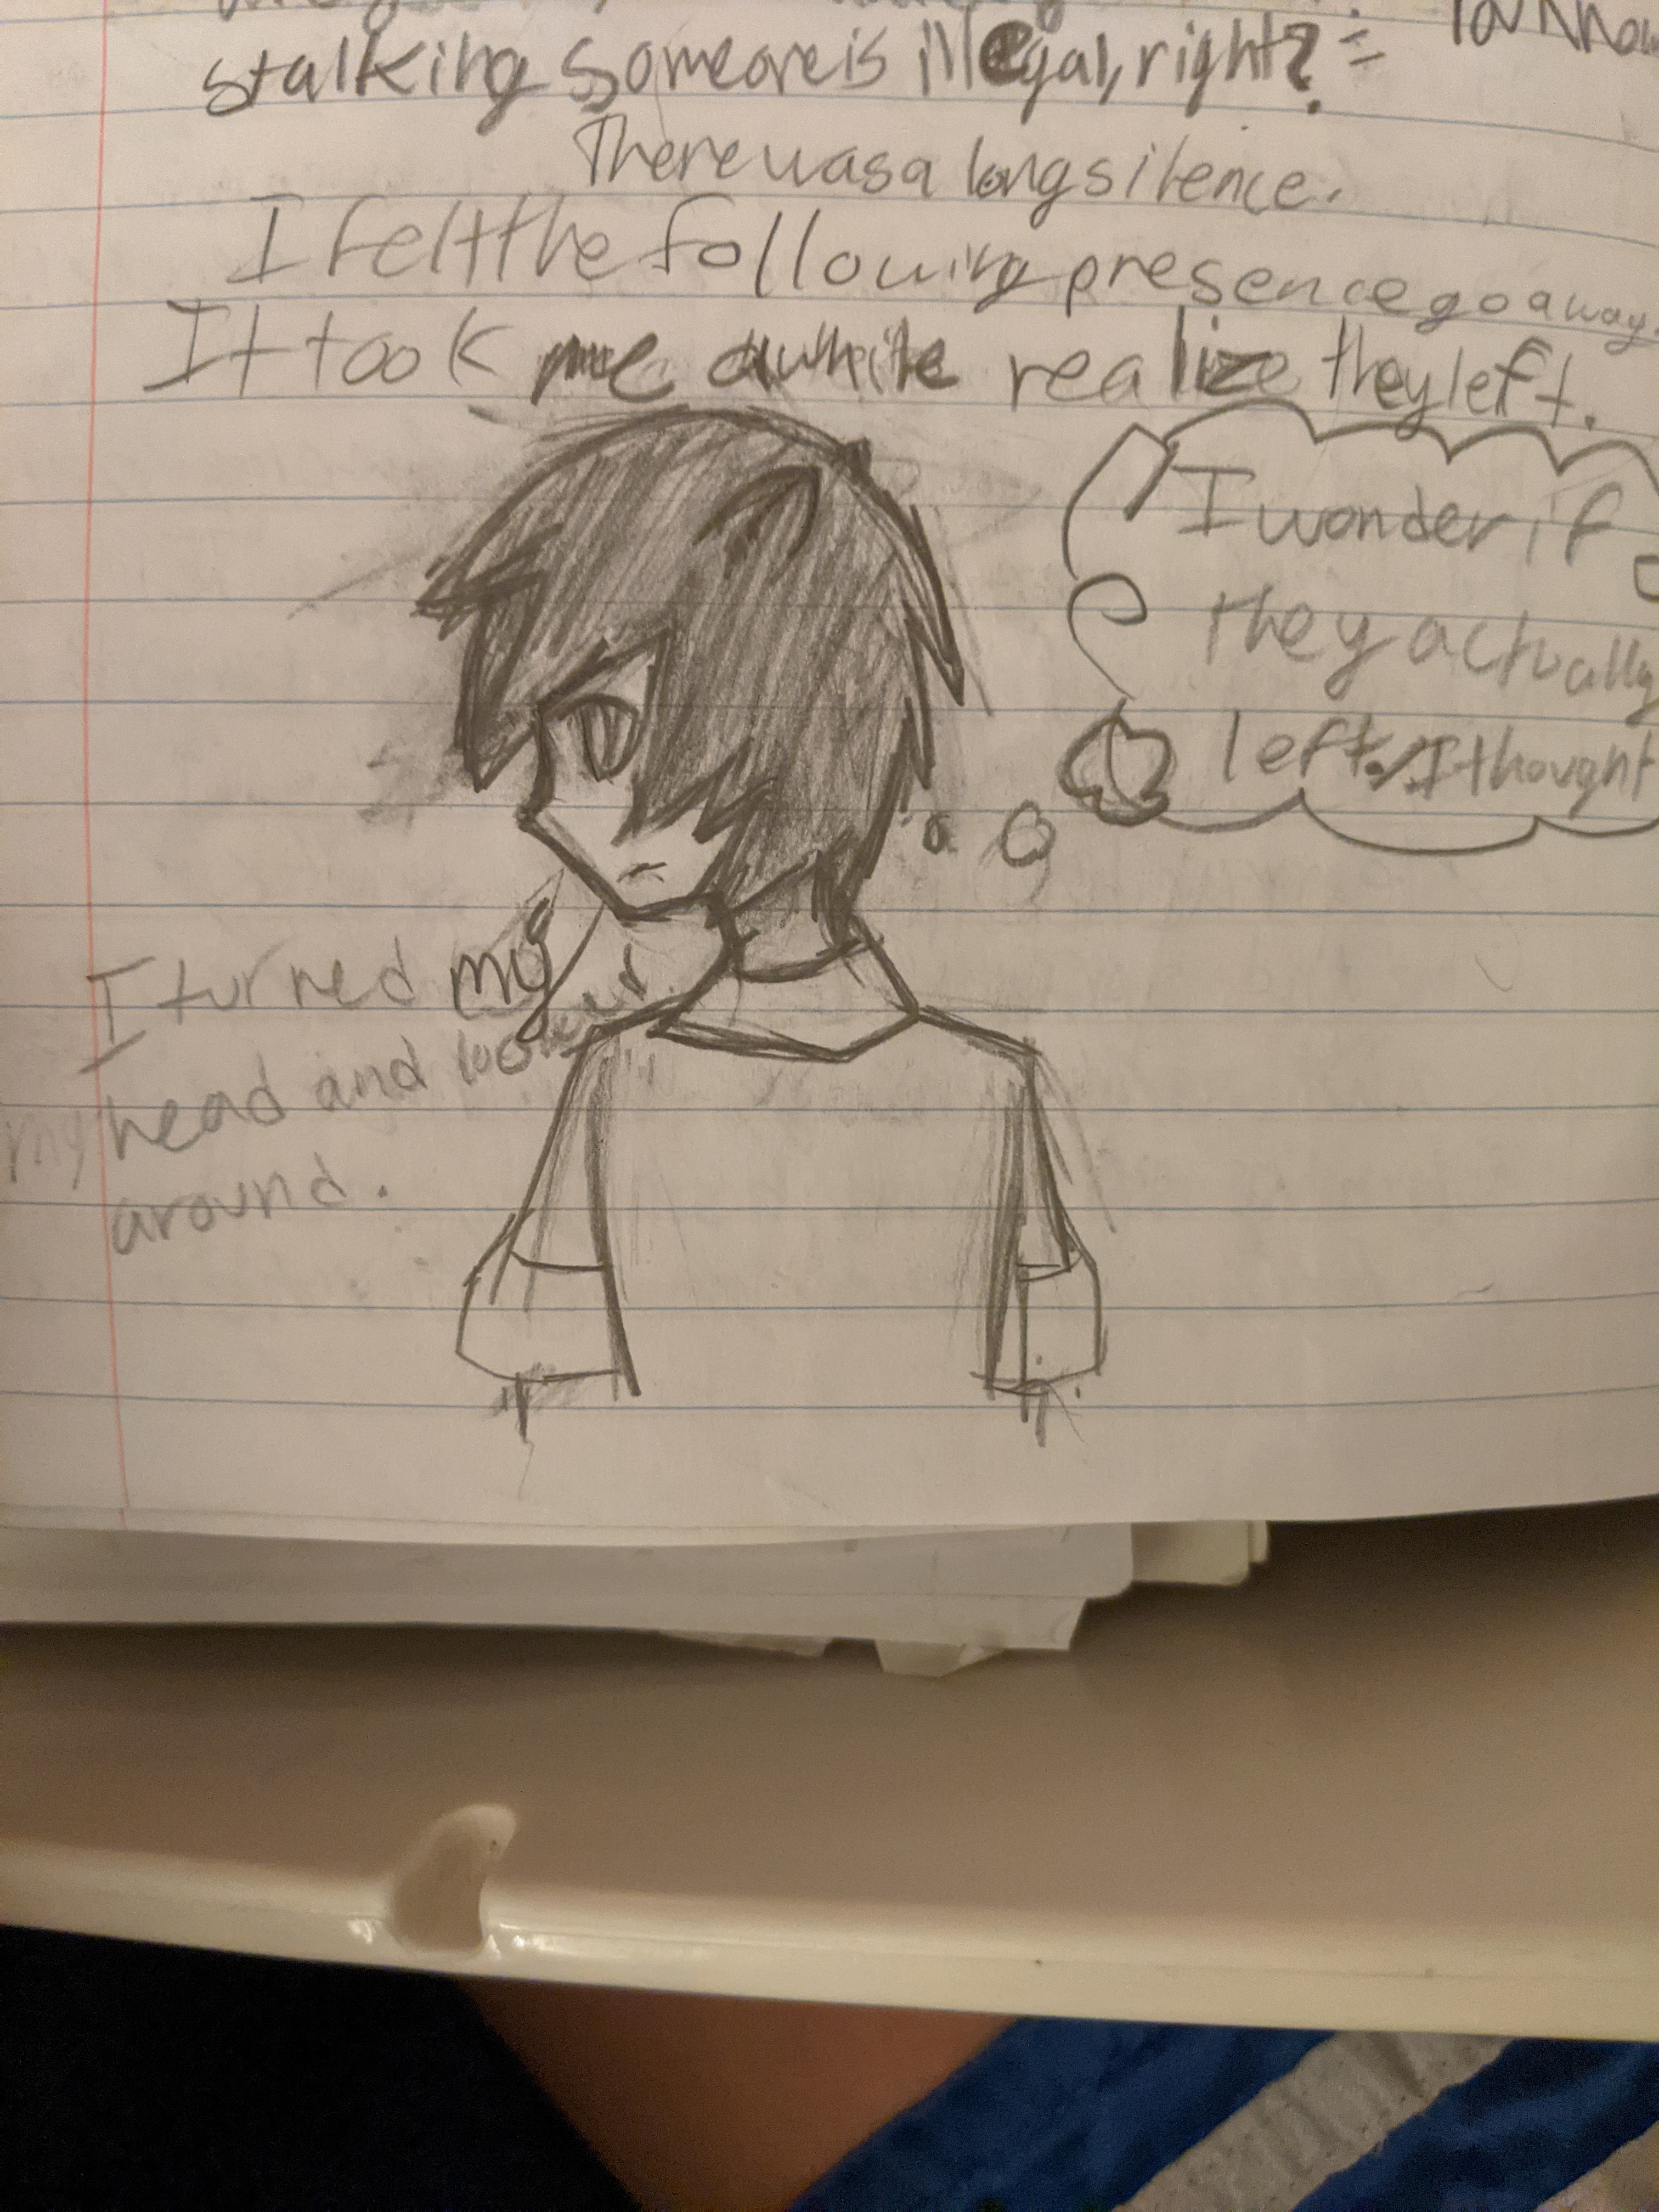 You know
stalking someone is illegal, right?"
There was a long silence.
I felt the following presence go away.
It took me awhile realize they left.
I wonder if
they actually
left. I thought
I turned my
my head and looked
around.